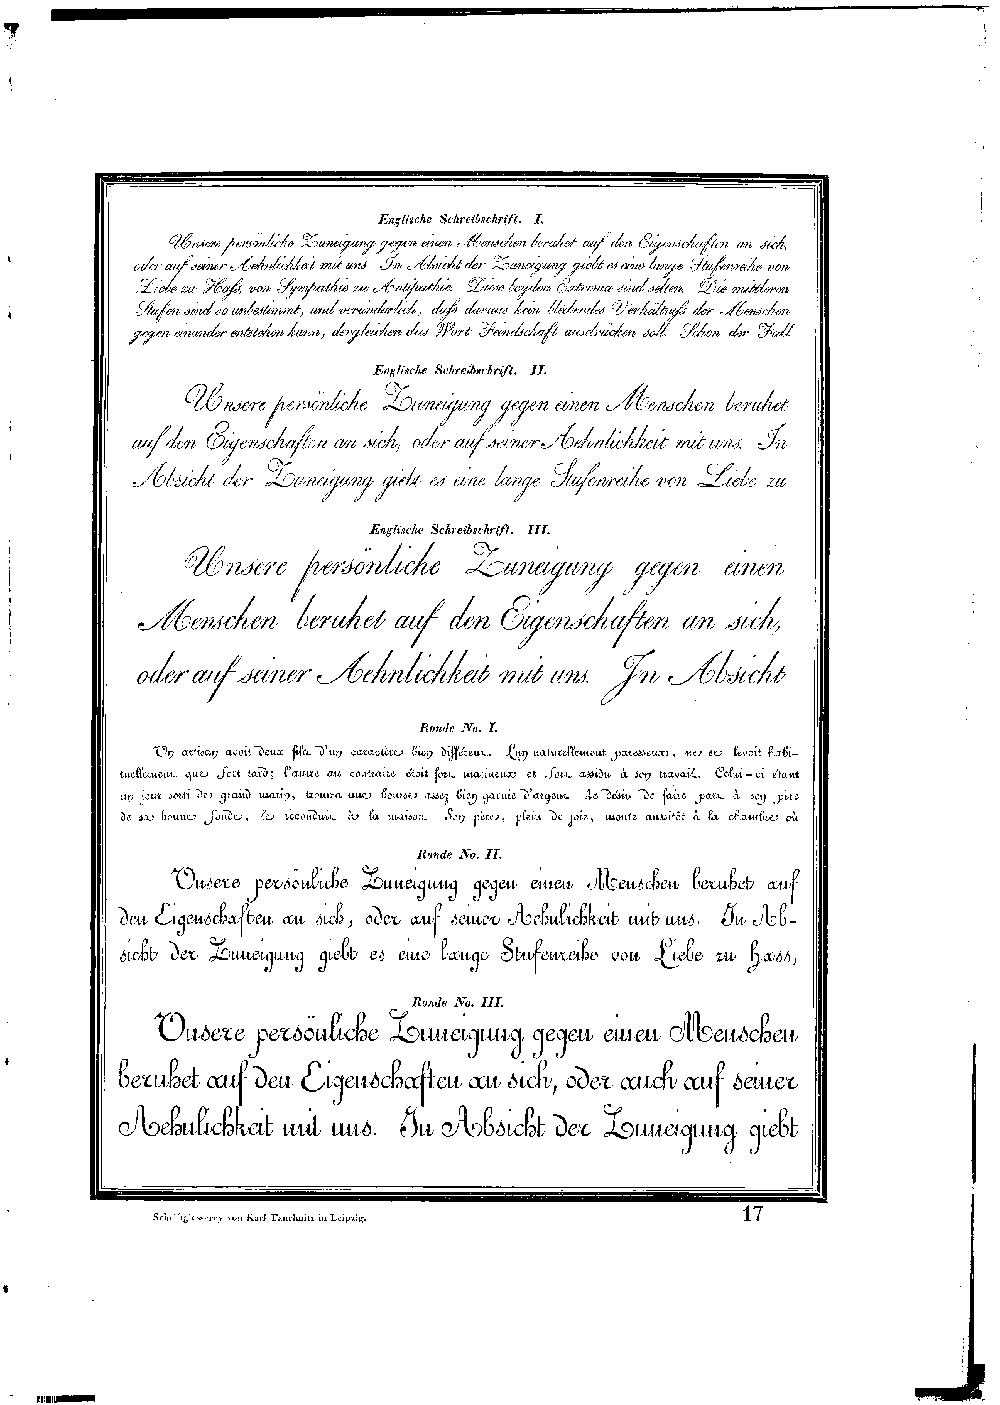 Englische Schreibschrift. I.
Unsere persönliche Zuneigung gegen einen Menschen beruhet auf den Eigenschaften an sich,
oder auf seiner Aehnlichkeit mit uns. In Absicht der Zuneigung giebt es eine lange Stufenreihe von
Liebe zu Haß, von Sympathie zu Antipathie. Diese beyden Extrema sind selten. Die mittleren
Stufen sind so unbestimmt, und veränderlich, daß daraus kein bleibendes Verhältniß der Menschen
gegen einander entstehen kann, dergleichen das Wort Feindschaft ausdrücken soll. Schon der Fall
Englische Schreibschrift. II.
Unsere persönliche Zuneigung gegen einen Menschen beruhet
auf den Eigenschaften an sich, oder auf seiner Aehnlichkeit mit uns. In
Absicht der Zuneigung giebt es eine lange Stufenreihe von Liebe zu
Englische Schreibschrift. III.
Unsere persönliche Zuneigung gegen einen
Menschen beruhet auf den Eigenschaften an sich,
oder auf seiner Aehnlichkeit mit uns. In Absicht
Ronde No. I.
Un artisan avoit deux fils d'un caractère bien différent. L'un naturellement paresseux, ne se levoit habi-
tuellement que fort tard; l'autre au contraire étoit fort matineux et fort assidu à son travail. Celui-ci étant
un jour sorti de grand matin, trouva une bourse assez bien garnie d'argent. Le désir de faire part à son père
de sa bonne fonde, le reconduit à la maison. Son père, plein de joie, monte aussitôt à la chambre où
Ronde No. II.
Unsere persönliche Zuneigung gegen einen Menschen beruhet auf
den Eigenschaften an sich, oder auf seiner Aehnlichkeit mit uns. In Ab-
sicht der Zuneigung giebt es eine lange Stufenreihe von Liebe zu Hass,
Ronde No. III.
Unsere persönliche Zuneigung gegen einen Menschen
beruhet auf den Eigenschaften an sich, oder auch auf seiner
Aehnlichkeit mit uns. In Absicht der Zuneigung giebt
Schriftgiesserey von Karl Tauchnitz in Leipzig.
17